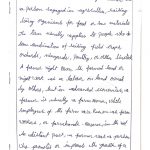 a person engaged in agriculture, raising
living organisms for food or raw materials.
The term usually applies to people who do
some combination of raising field crops,
orchards, vineyards, poultry, or other livestock.
A farmer might own the farmed land or
might work as a labourer on land owned
by others, but in advanced economies, a
farmer is usually a farm owner, while
employees of the farm are known as farm
workers, or farmhands. However, in the not
so distant past, a farmer was a person
who promotes or improves the growth of a